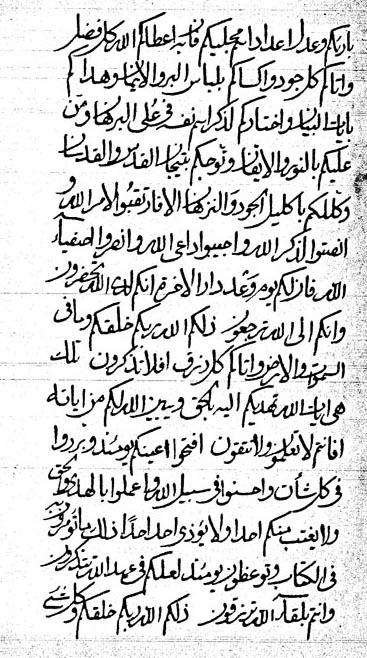 بازيكم وعدل اعدادا محليكم فانه اعطاكم الله كل فضل
واتاكم كل جود واكساكم بلباس البر والايمان وهداكم
بايات البيان واختاركم لذكر اسم نفسه في علي البرهان ومن
عليكم بالنور والايقان وتوجكم بتيجان القدس والقديان
وكللكم باكليل الجود والنزهان الا فارتقبوا لامر الله و
انصتوا لذكر الله واجيبوا داعي الله وانصروا اصفياء
الله فان لكم يوم وعد دار الاخرة انكم لدى الله تحضرون
وانكم الى الله ترجعون ذلكم الله ربكم خلقكم وما في
السموات والارض واتاكم كل رزق افلا تذكرون تلك
هي ايات الله تهديكم اليه بالحق ويبين الله لكم من اياته
افانتم لا تعلمون ولا تتقون افتحوا اعينكم يومئذ وبرروا
في كل شأن واحسنوا في سبيل الله واعملوا بالهدى والحق
ولا يغتب منكم احدا ولا يؤذي احد احدا ذلك ما تؤمرون
في الكتاب وتوعظون يومئذ لعلكم في عهد الله تتذكرون
وانتم بلقاء الله ترزقون ذلكم الله ربكم خلقكم وكل شيء